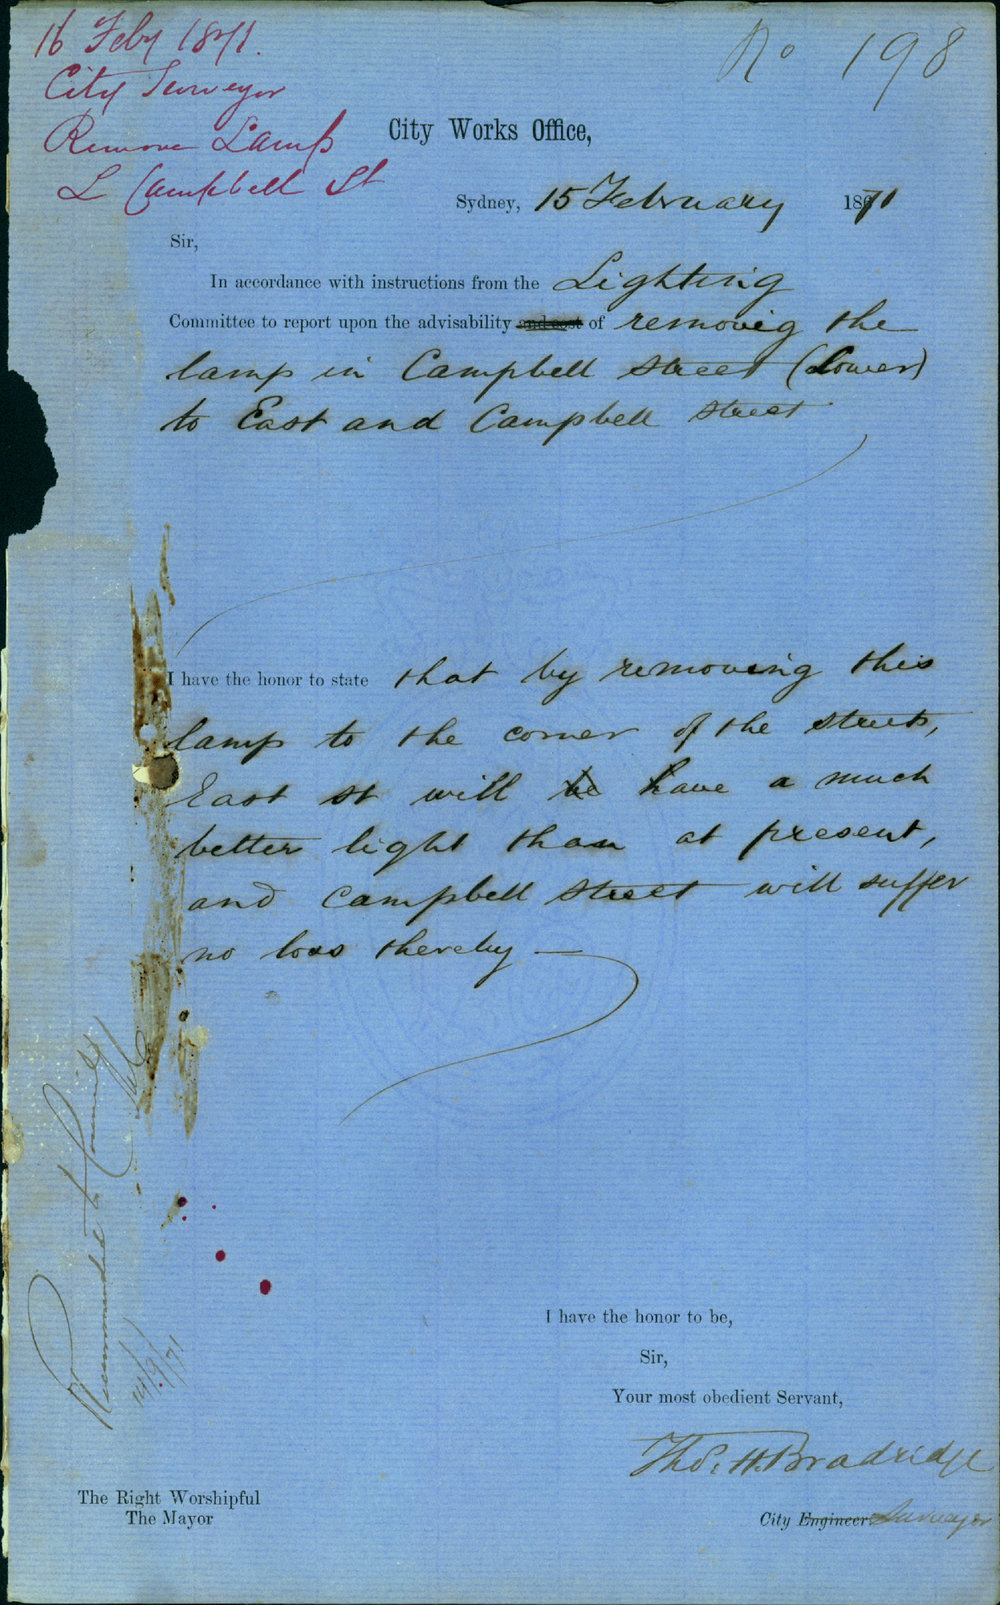 16 Feby 1871.
City Surveyor
Remove Lamp
L Campbell St
No 198
City Works Office,
Sydney, 15 February 1871
Sir,
In accordance with instructions from the Lighting
Committee to report upon the advisability and cost of removig the
lamp in Campbell street (Lower)
to East and Campbell street
I have the honor to state that by removing this
lamp to the corner of the streets,
East st will be have a much
better light than at present,
and Campbell street will suffer
no loss thereby —
Recommended to Council
14/9/71
I have the honor to be,
Sir,
Your most obedient Servant,
Thos. H. Bradridge
City Engineer Surveyor
The Right Worshipful
The Mayor